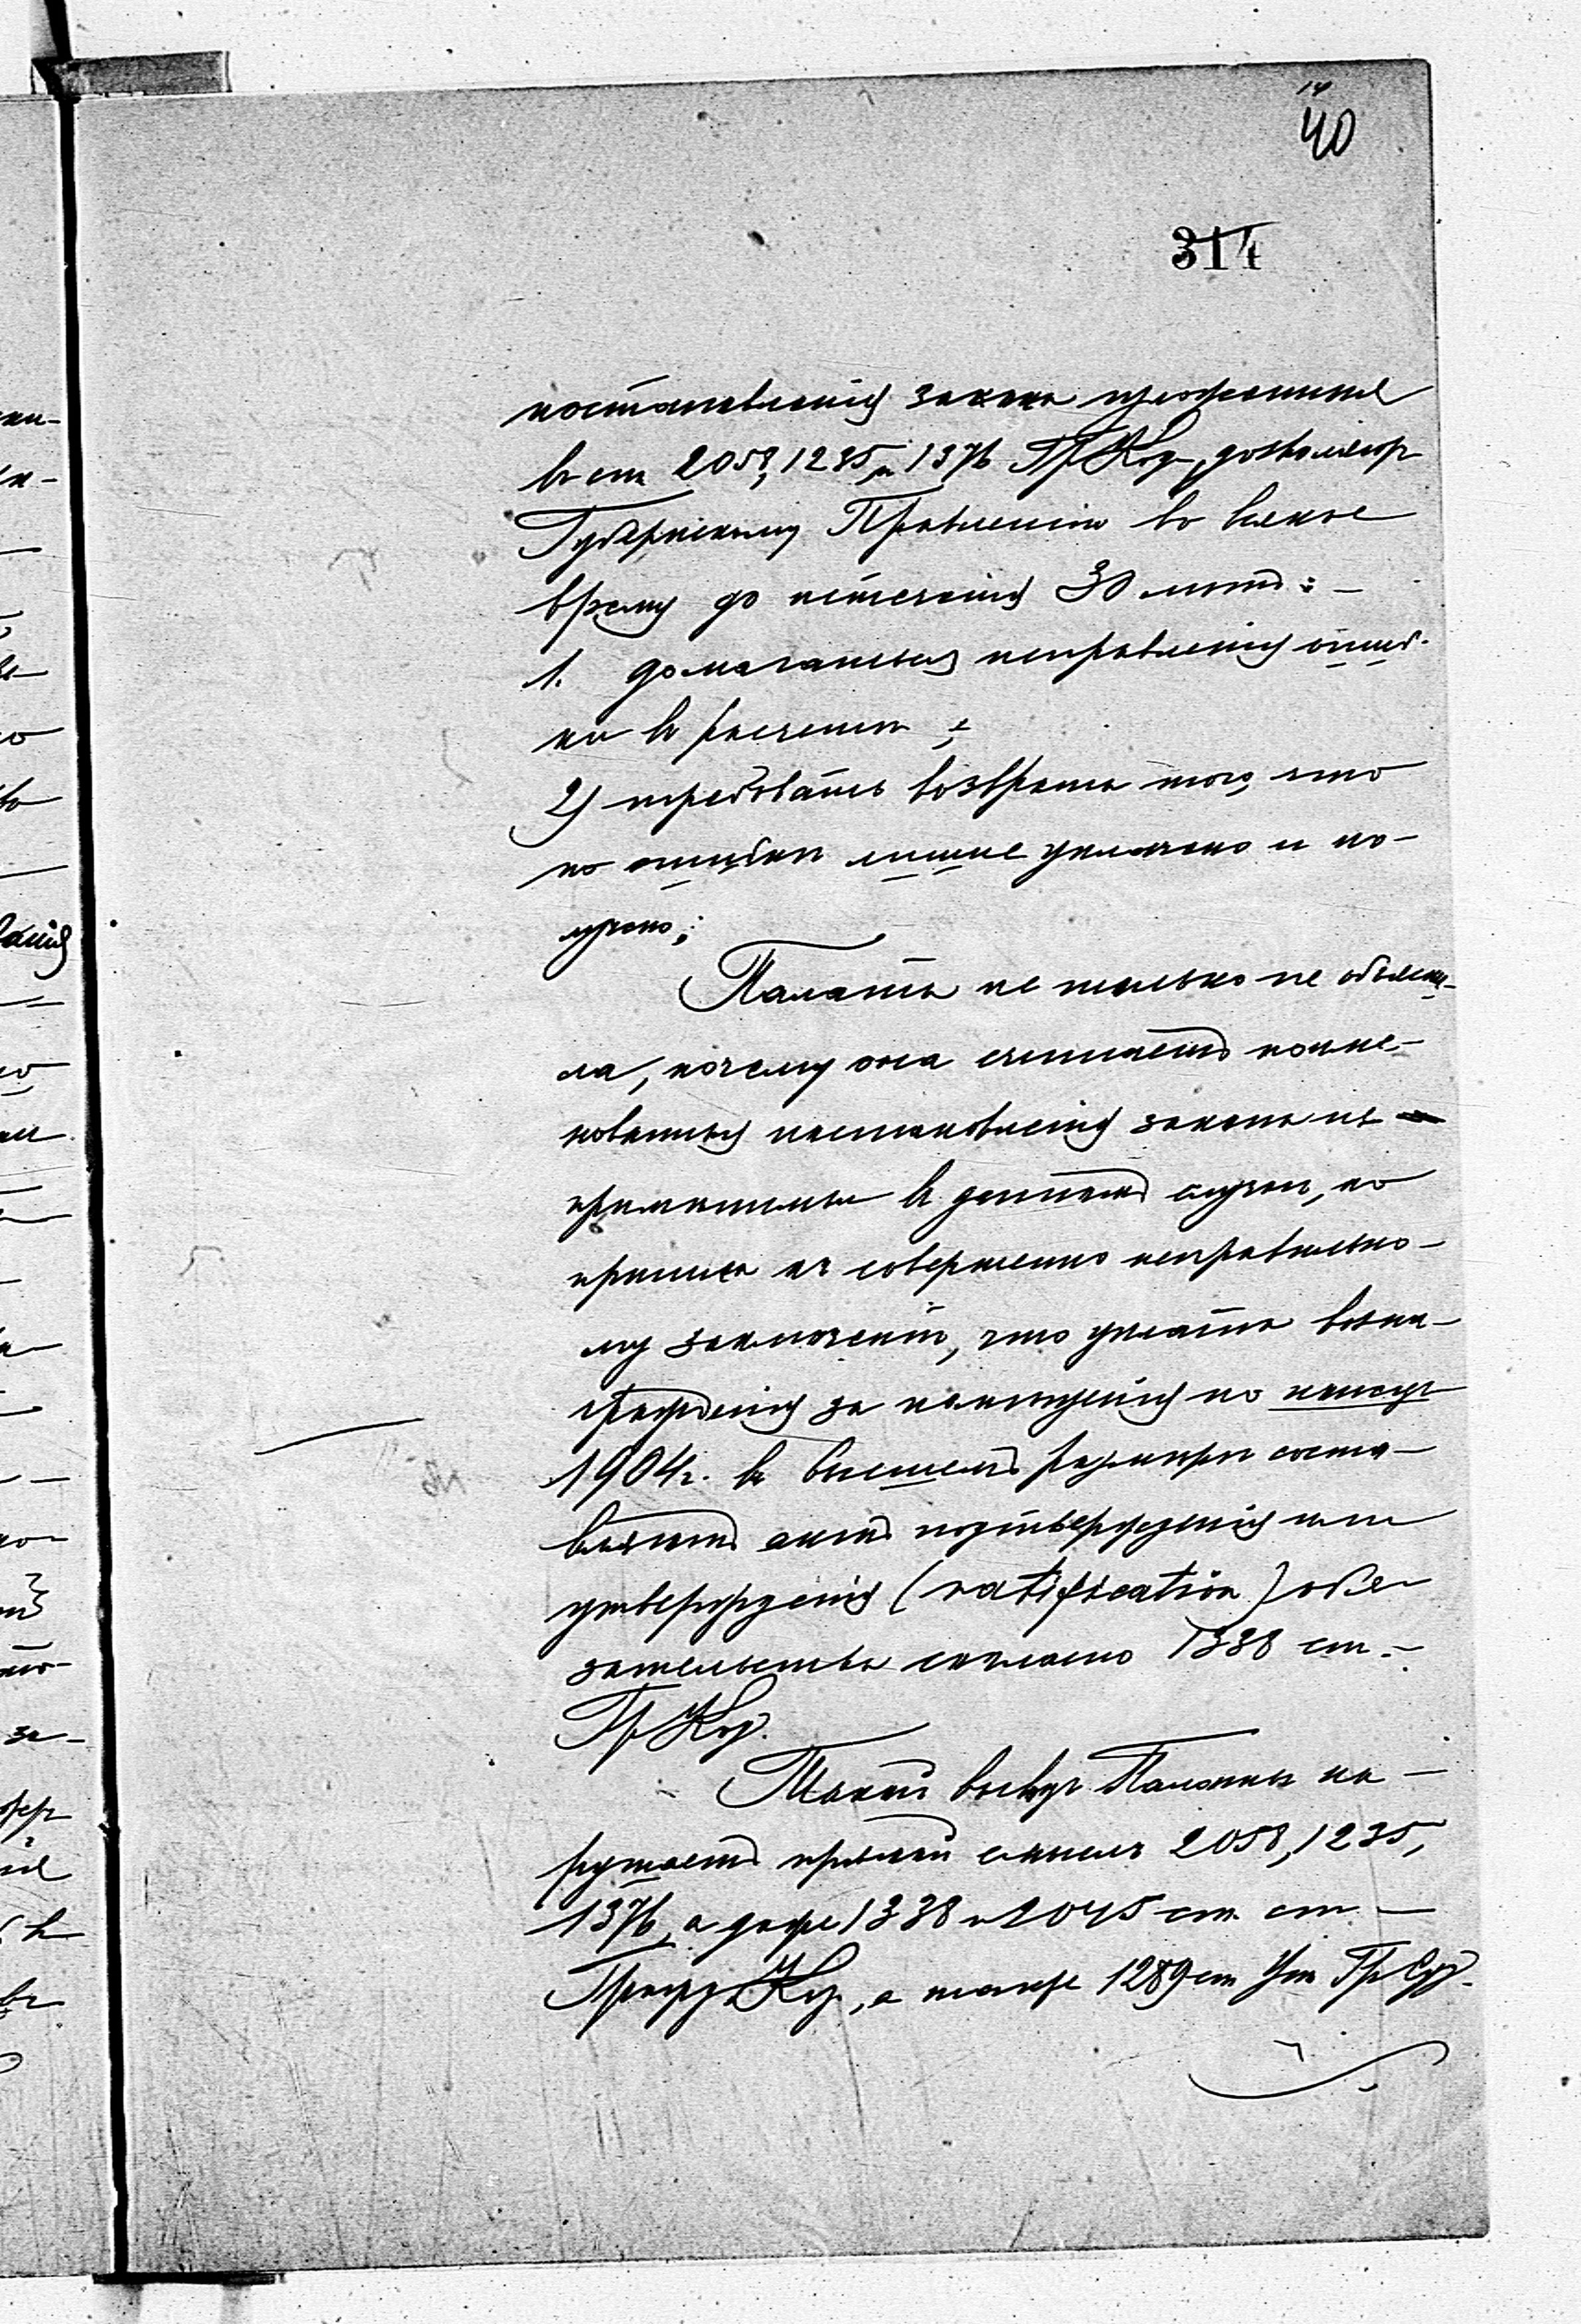 14
40
314
постановленія закона изложенныя
въ ст 2058, 1235, и 1376 Гр Код, дозволяютъ
Губернскому Правленію во всякое
время до истеченія 30 летъ: —
1. домагаться исправленія ошиб-
ки въ расчетѣ;
2) требовать возврата того, что
по ошибкѣ лишне уплачено и по-
лучено;
Палата не только не объясни-
ла, почему она считаетъ поиме-
нованныя постановленія закона не
примѣнимыми въ данномъ случаѣ, но
пришла къ совершенно неправильно-
му заключенію, что уплата возна-
гражденія за
1904 г. въ высшемъ размѣрѣ соста-
вляетъ актъ подтвержденія или
утвержденія (ratification) обя-
зательства согласно 1338 ст. —
Гр Код.
Такой выводъ Палаты на-
рушаетъ прямой смыслъ 2058, 1235,
1376, а даже 1338 и 2045 ст. ст. —
Гражд Код, а также 1289 ст Уст Гр Суд.